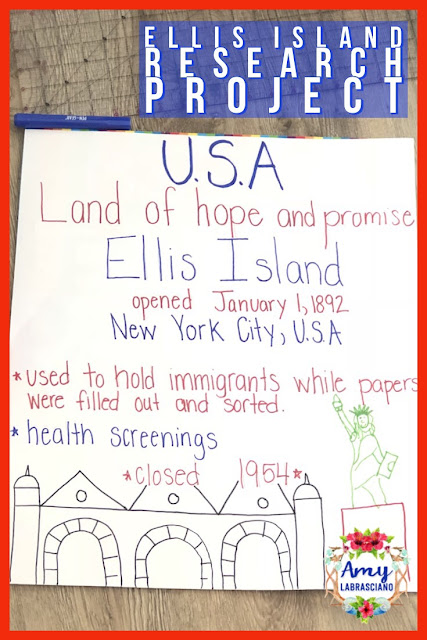 ELLIS ISLAND
RESEARCH
PROJECT
U.S.A
Land of hope and promise
Ellis Island
opened January 1, 1892
New York City, U.S.A
*used to hold immigrants while papers
were filled out and sorted.
*health screenings
*closed 1954*
Amy
LABRASCIANO